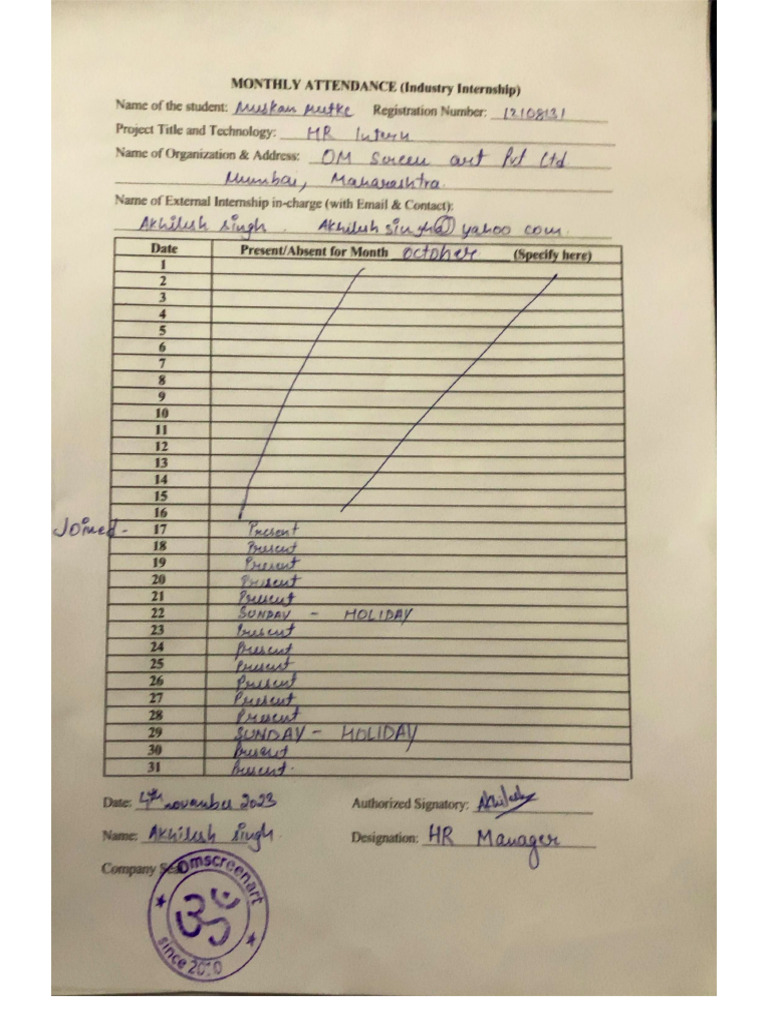 MONTHLY ATTENDANCE (Industry Internship)
Name of the student: Muskan Mutke Registration Number: 12108131
Project Title and Technology: HR Intern
Name of Organization & Address: OM Screen art Pvt Ltd
Mumbai, Maharashtra.
Name of External Internship in-charge (with Email & Contact):
Akhilesh Singh. Akhilesh singh@yahoo com.
Date Present/Absent for Month october (Specify here)
1
2
3
4
5
6
7
8
9
10
11
12
13
14
15
16
Joined - 17 Present
18 Present
19 Present
20 Present
21 Present
22 SUNDAY - HOLIDAY
23 Present
24 Present
25 Present
26 Present
27 Present
28 Present
29 SUNDAY - HOLIDAY
30 Present
31 Present.
Date: 4th november 2023 Authorized Signatory: Akhilesh
Name: Akhilesh Singh. Designation: HR Manager
Company Seal
Omscreenart
ॐ
since 2010